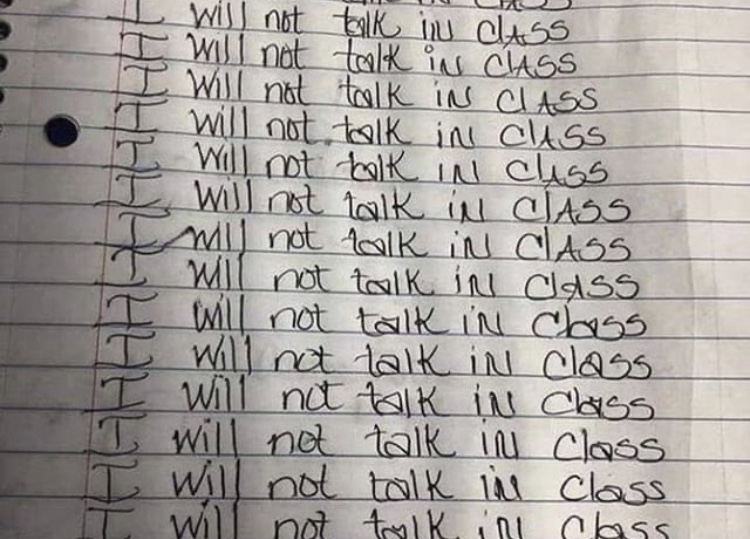 I will not talk in clASS
I will not talk in ClASS
I will not talk in ClASS
I will not talk in ClASS
I will not talk in ClASS
I will not talk in ClASS
I will not talk in ClASS
I will not talk in ClASS
I will not talk in Class
I will not talk in Class
I will not talk in Class
I will not talk in Class
I will not talk in Class
I will not talk in Class